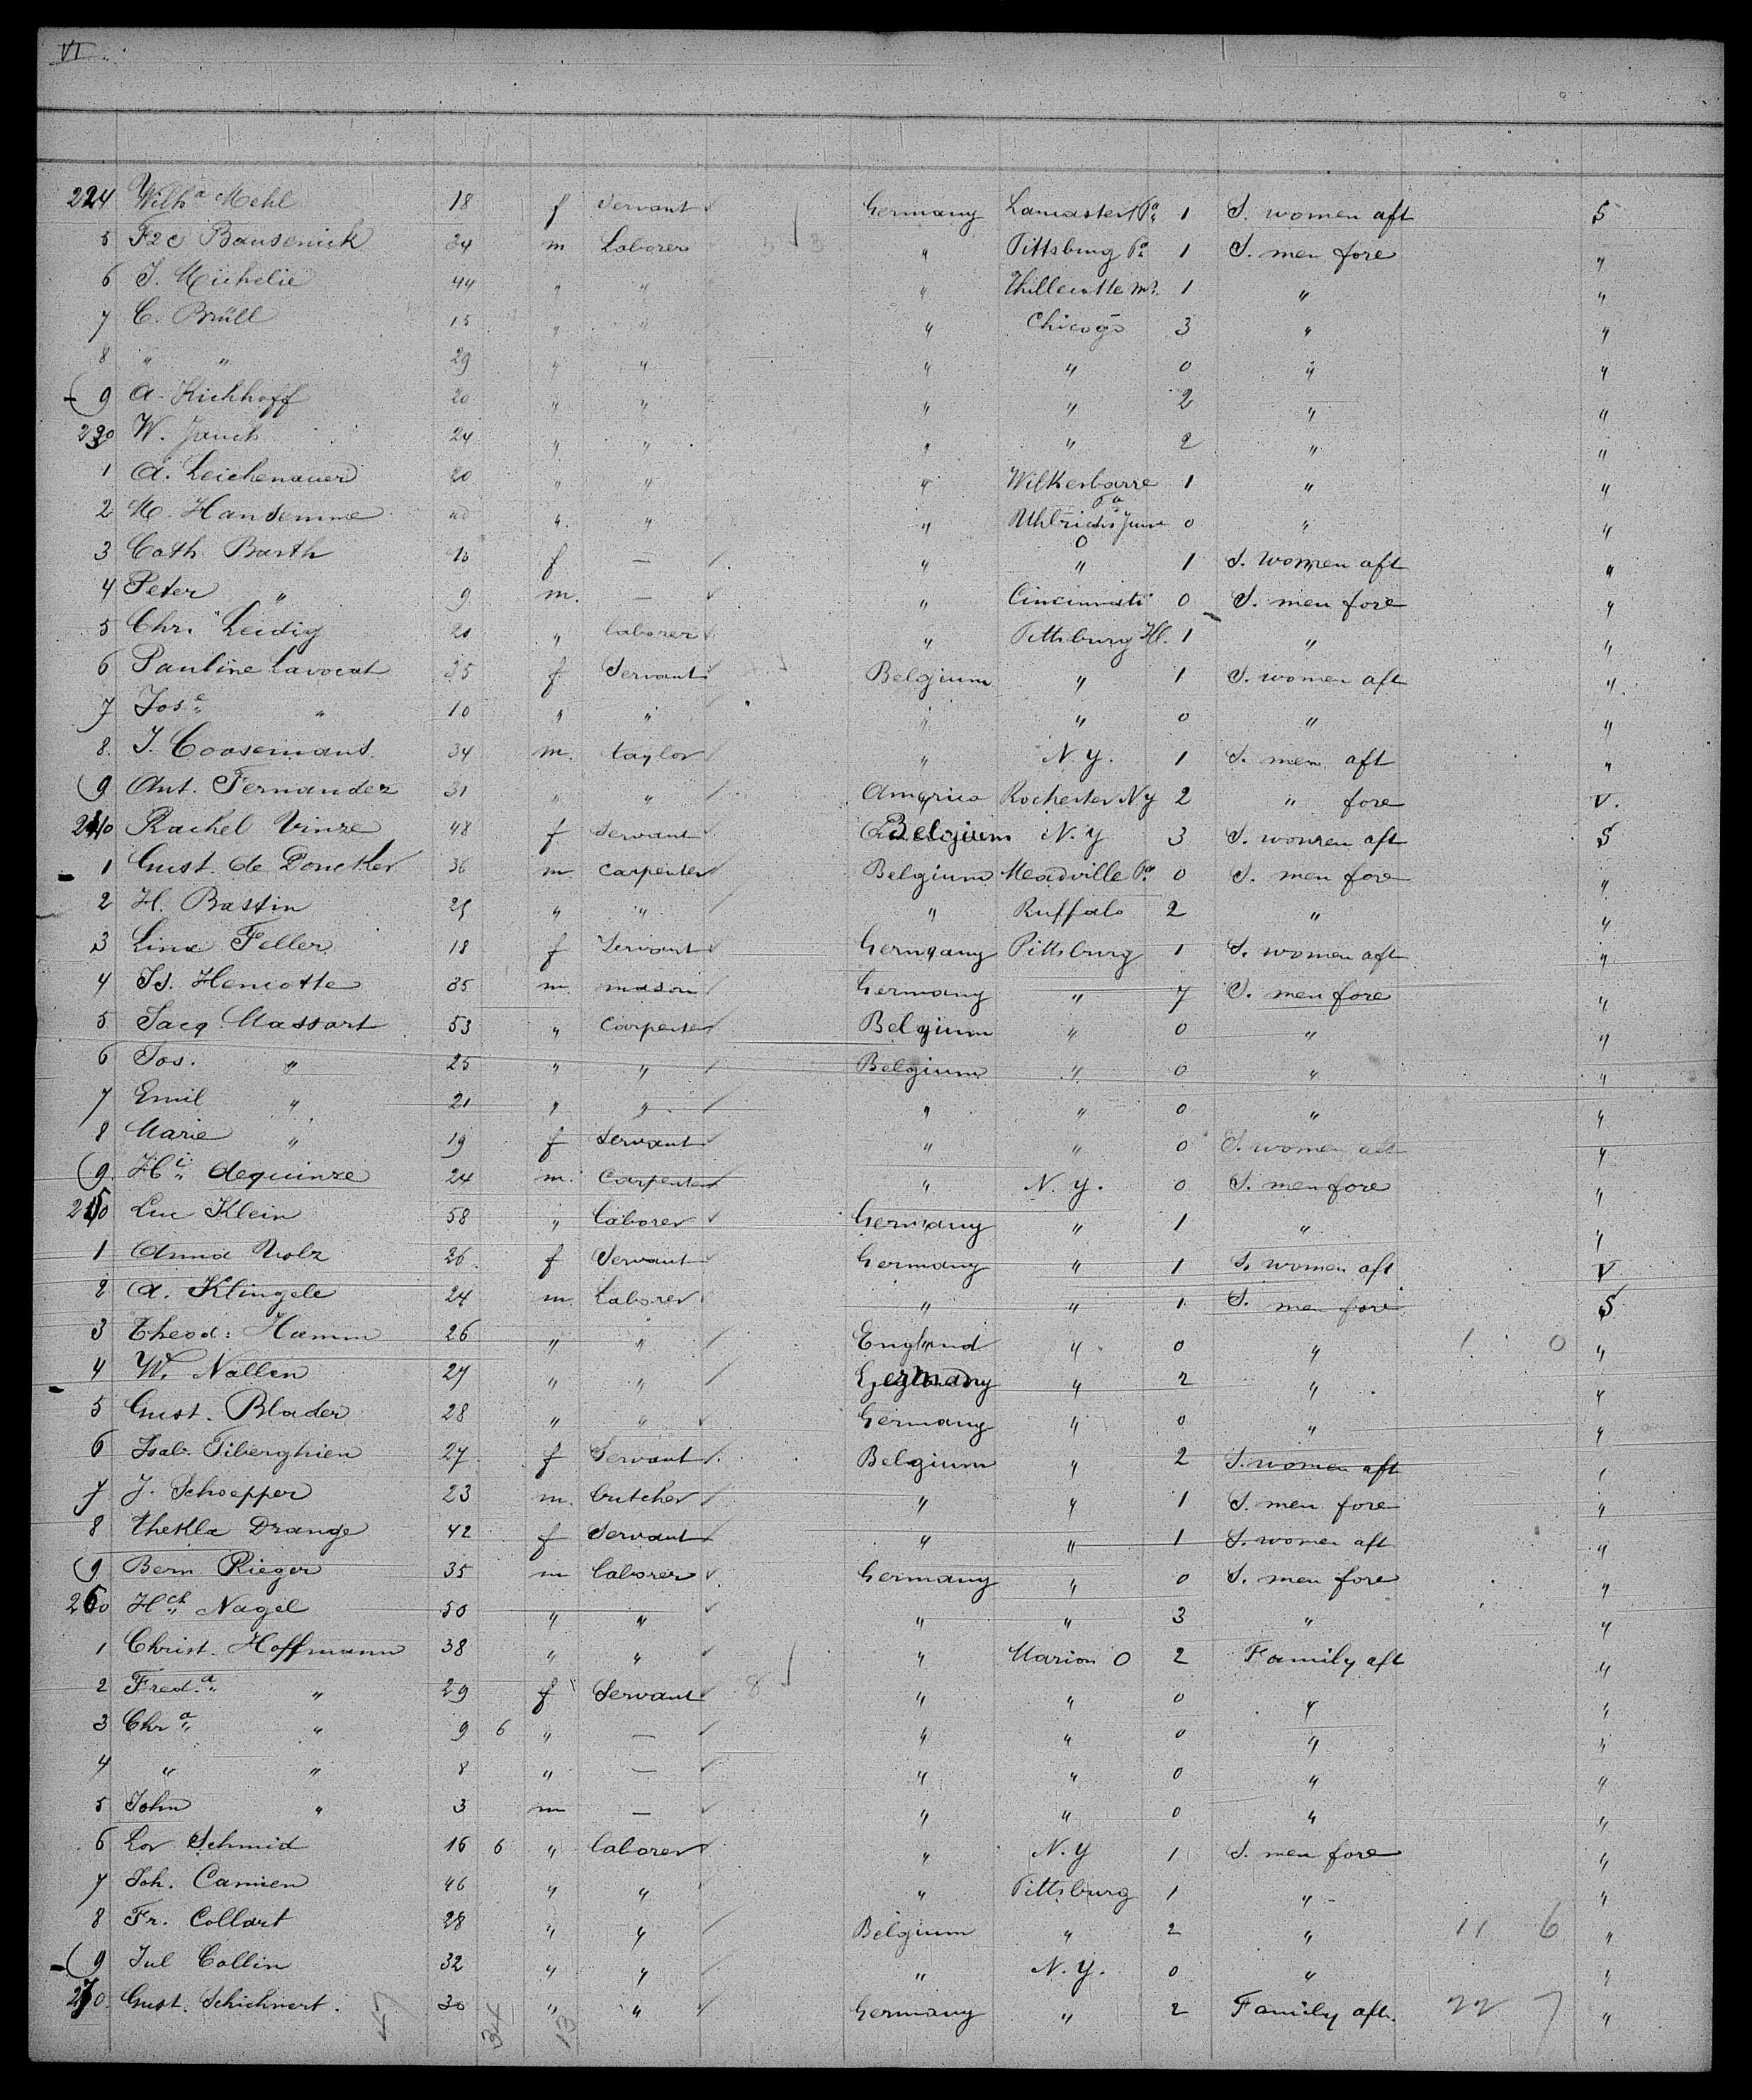 VI.
224 Wilh.a Mehl 18 f Servant Germany Lancaster Pa. 1 S. women aft S
5 Bausenick 34 m Laborer " Pittsburg Pa. 1 S. men fore "
6 J. Michelie 44 " " " 1 " "
7 C. Brüll 15 " " " Chicago 3 " "
8 " " 29 " " " " 0 " "
9 A. Kichhoff 20 " " " " 2 " "
230 W. Jauch 24 " " " " 2 " "
1 A. Leichenauer 20 " " " Wilkesbarre Pa 1 " "
2 M. Hansemme " " " 0 " "
3 Cath. Barth f — " " 1 S. women aft "
4 Peter " 9 m. — " Cincinnati 0 S. men fore "
5 Chr. Leidig 20 " laborer " Pittsburg 1 " "
6 Pauline Lavocat 35 f Servant Belgium " 1 S. women aft "
7 Jos.e " 10 " " " " 0 " "
8. J. Coosemans 34 m. taylor " N.Y. 1 S. men aft "
9 Ant. Fernandez 31 " " America Rochester NY 2 " fore V.
240 Rachel Vinze 48 f Servant Belgium N.Y 3 S. women aft S
1 Gust. de Doncker 36 m. carpenter Belgium Meadville Pa. 0 S. men fore "
2 H. Bastin 25 " " " Buffalo 2 " "
3 Line Feller 18 f Servant Germany Pittsburg 1 S. women aft "
4 Js. Hencotte 35 m. mason Germany " 7 S. men fore "
5 Jacq. Massart 53 " Carpenter Belgium " 0 " "
6 Jos. " 25 " " Belgium " 0 " "
7 Emil " 21 " " " " 0 " "
8 Marie " 19 f Servant " " 0 S. women aft "
9. Hi. dequinze 24 m. Carpenter " N.Y. 0 S. men fore "
250 Luc Klein 58 " laborer Germany " 1 " "
1 Anna Nolz 26 f Servant Germany " 1 S. women aft V
2 A. Klingele 24 m. Laborer " " 1 S. men fore S
3 Theod: Hamm 26 " " England " 0 " 1 0 "
4 W. Nallen 27 " " Germany " 2 " "
5 Gust. Blader 28 " " Germany " 0 " "
6 Isab. Tiberghien 27 f Servant Belgium " 2 S. women aft "
7 J. Schoepper 23 m. butcher " " 1 S. men fore "
8 Thekla Drange 42 f Servant " " 1 S. women aft "
9. Bern. Rieger 35 m laborer Germany " 0 S. men fore "
260 Hch. Nagel 50 " " " " 3 " "
1 Christ. Hoffmann 38 " " " Marion O 2 Family aft "
2 Fred.a " 29 f Servant 8 " " 0 " "
3 Chr.a " 9 6 " — " " 0 " "
4 " " 8 " — " " 0 " "
5 John " 3 m — " " 0 " "
6 Lor Schmid 16 6 " laborer " N.Y 1 S. men fore "
7 Joh. Camien 46 " " " Pittsburg 1 " "
8 Fr. Collart 28 " " Belgium " 2 " 11 6 "
9 Jul Collin 32 " " " N.Y. 0 " "
270. Gust. Schichnert. 30 " " Germany " 2 Family aft. 22 7 "
47 34 13